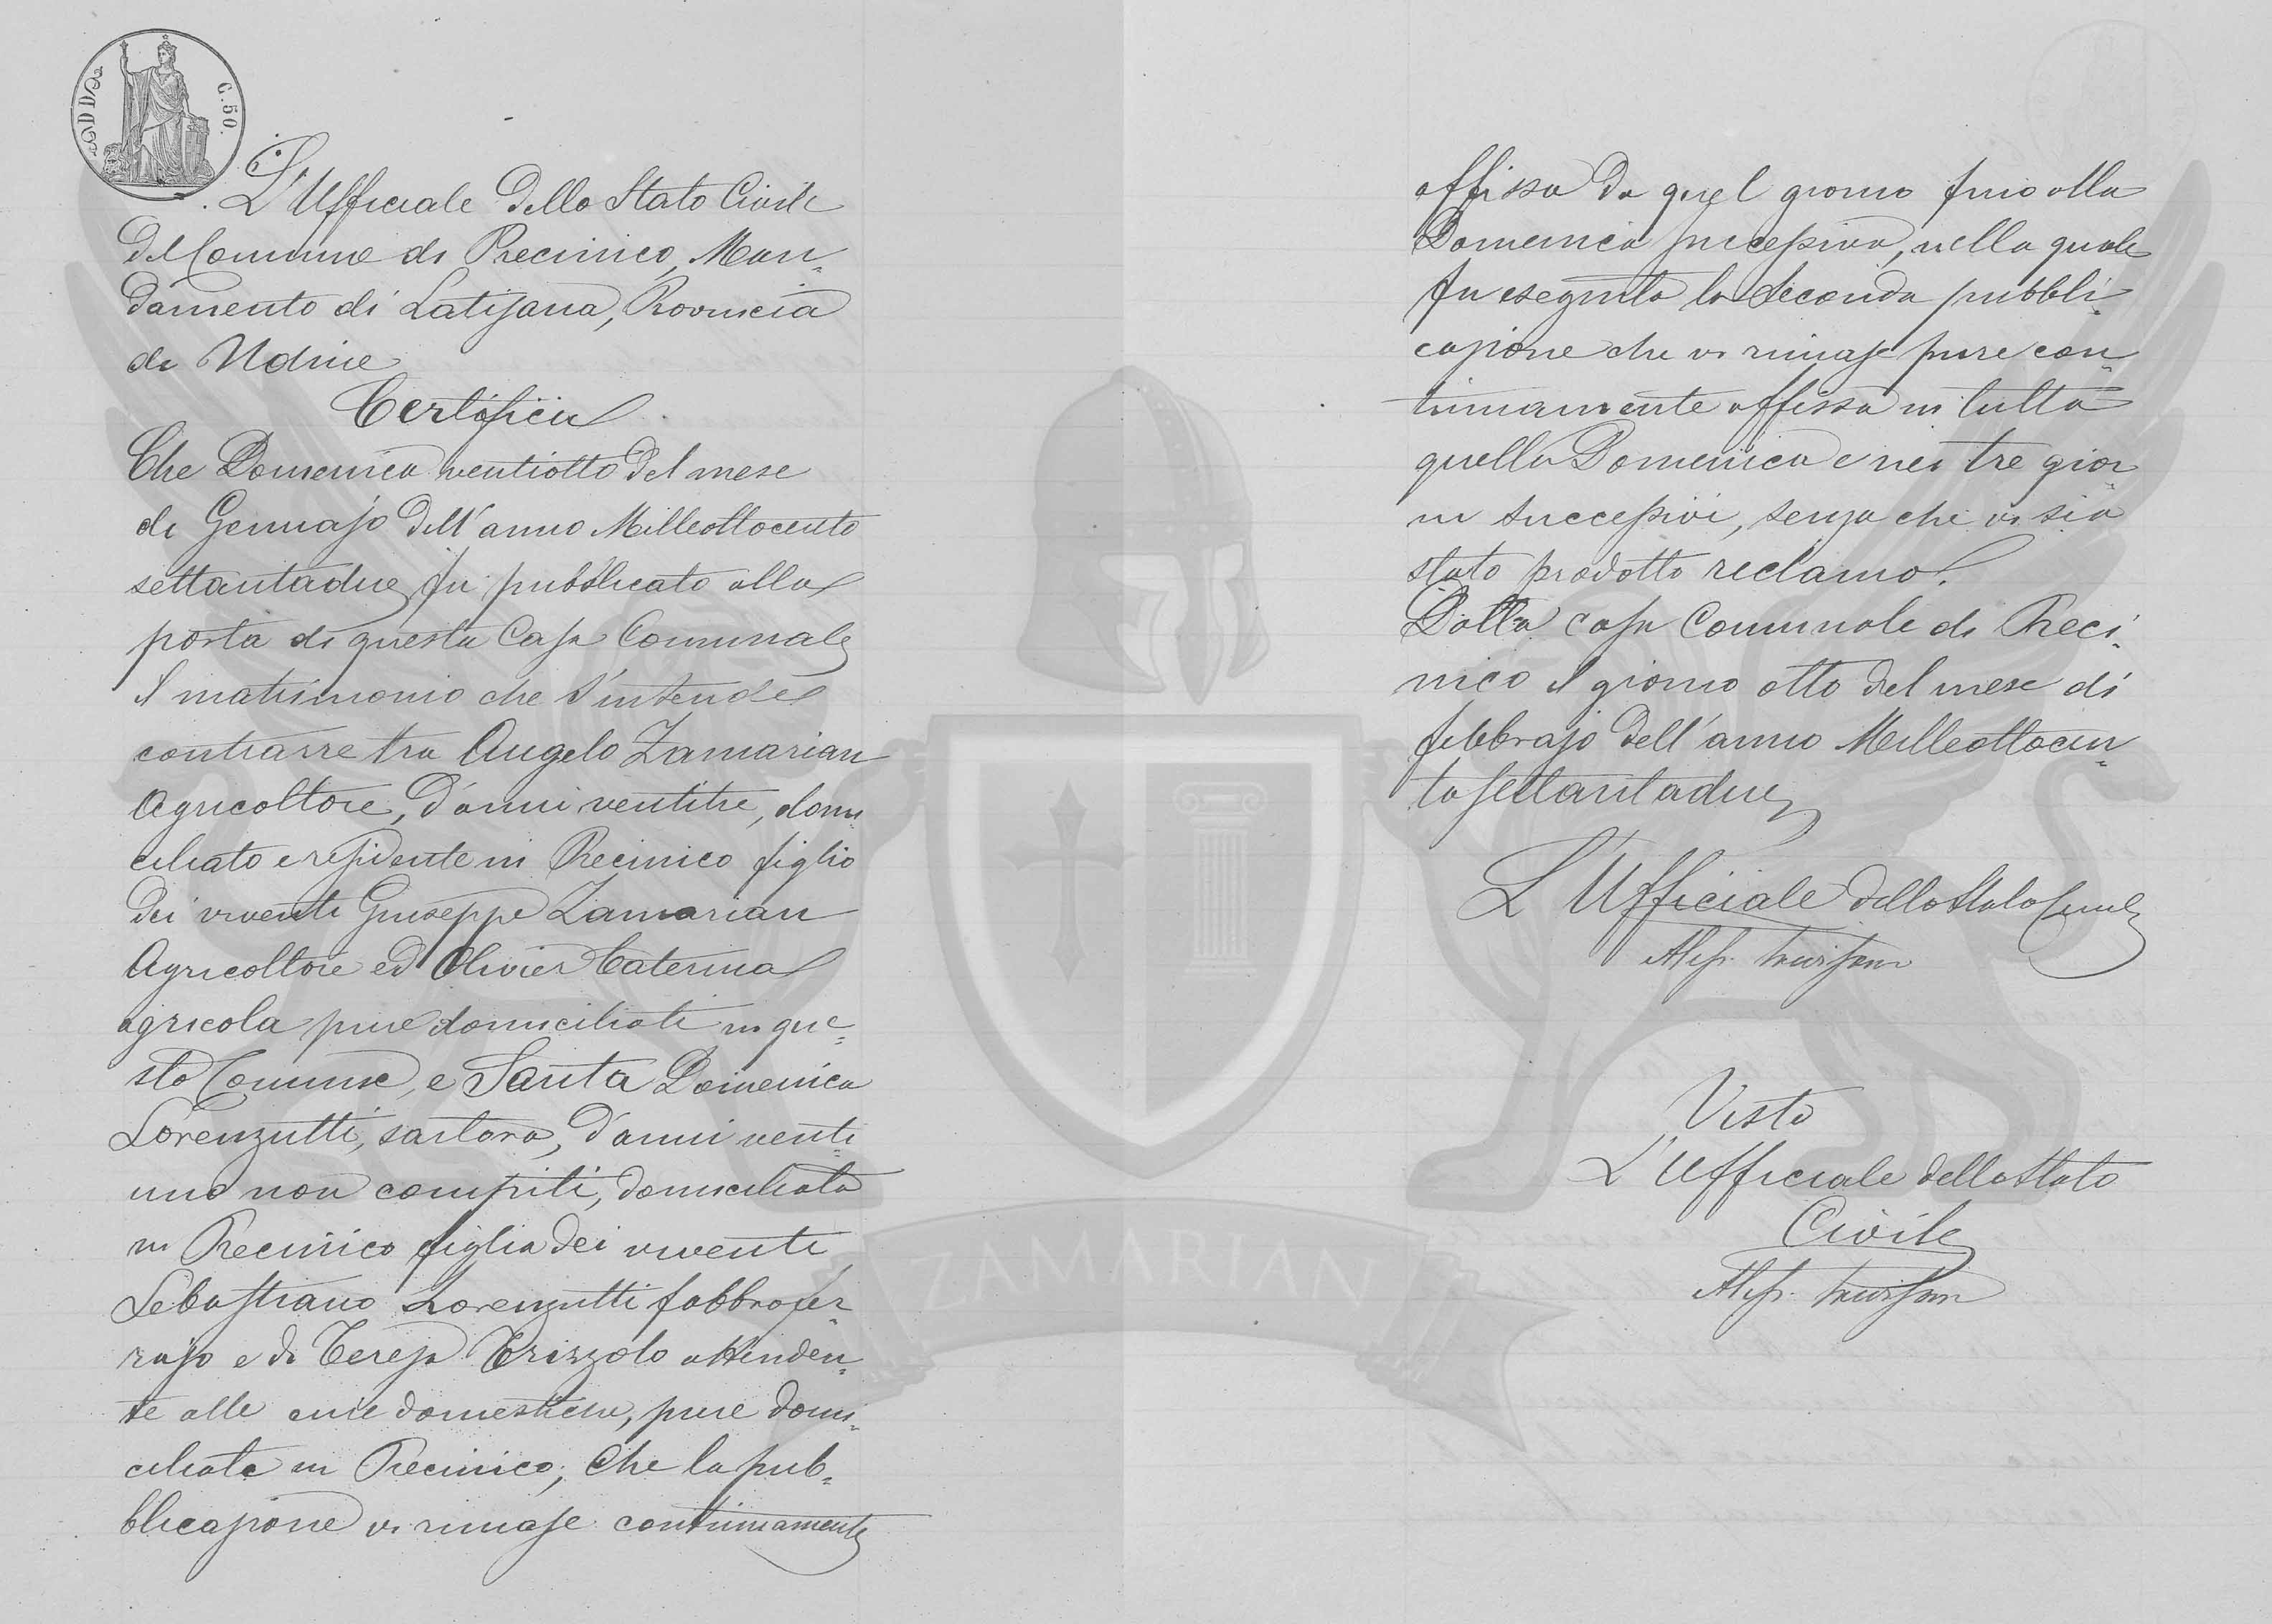 C. 50.
L'Ufficiale dello Stato Civile
del Comune di Precinico, Man=
damento di Latisana, Provincia
di Udine
Certifica
Che Domenica ventiotto del mese
di Gennajo dell'anno Milleottocento
settantadue fu pubblicato alla
porta di questa Casa Comunale
il matrimonio che s'intende
contrarre tra Angelo Zamarian
Agricoltore, d'anni ventitre, domi
ciliato e residente in Precinico figlio
dei viventi Giuseppe Zamarian
Agricoltore ed Olivier Caterina
agricola pure domiciliati in que=
sto Comune, e Santa Domenica
Lorenzutti, sartora, d'anni vent
uno non compiti, domiciliata
in Precinico figlia dei viventi
Sebastiano Lorenzutti fabbrofer=
rajo e di Teresa Trizzolo attenden=
te alle cure domestiche, pure domi=
ciliata in Precinico; Che la pub=
blicazione vi rimase continuamente
affissa da quel giorno fino alla
Domenica successiva, nella quale
fu eseguita la seconda pubbli=
cazione che vi rimase pure con=
tinuamente affissa in tutta
quella Domenica e nei tre gior=
ni successivi, senza che vi sia
stato prodotto reclamo.
Dalla casa Comunale di Preci=
nico il giorno otto del mese di
febbrajo dell'anno Milleottocen=
to settantadue
L'Ufficiale dello Stato Civile
Visto
L'Ufficiale dello Stato
Civile
ZAMARIAN